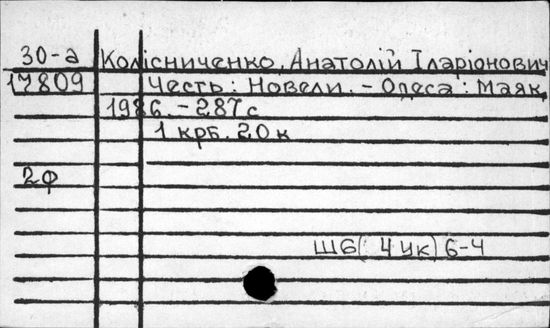 30-а Колісниченко, Анатолій Іларіонович
17809 Честь: Новели. - Одеса: Маяк,
1986. - 287 с
1 крб. 20 к
2ф
Ш6( 4 Ук) 6-4